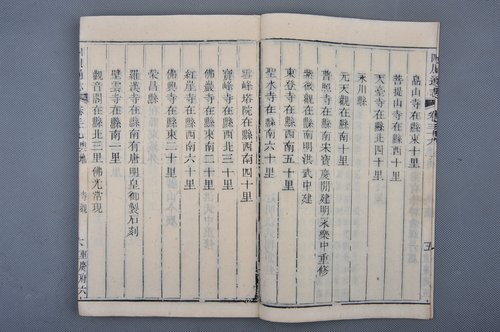 島山寺在縣東十里
菩提山寺在縣南十里
天臺寺在縣北四十里
永川縣
元天觀在縣南十里
普照寺在縣南宋寶慶開建明永樂中重修
紫微觀在縣南明洪武中建
東登寺在縣西南五十里
聖水寺在縣南六十里
雲峰塔院在縣西南四十里
寶峰寺在縣西北三十里
佛巖寺在縣南二十里
佛興寺在縣東二十里
榮昌縣
羅漢寺在縣南有唐明皇御製石刻
壁雲寺在縣南一里
觀音閣在縣北三里佛光常現